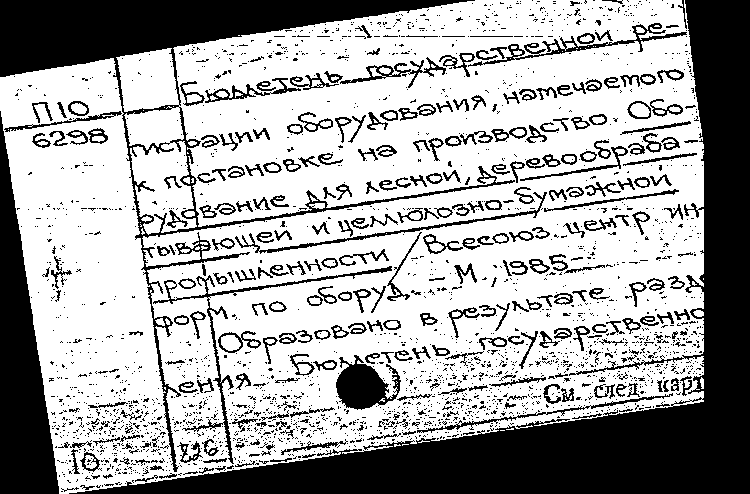 П10
6298
Бюллетень государственной ре-
гистрации оборудования, намечаемого
к постановке на производство. Обо-
рудование для лесной, деревообраба-
тывающей и целлюлозно-бумажной
промышленности / Всесоюз. центр ин-
форм. по оборуд. – М., 1985–
Образовано в результате разде
ления Бюллетень государственно
См. след. карт
10 826